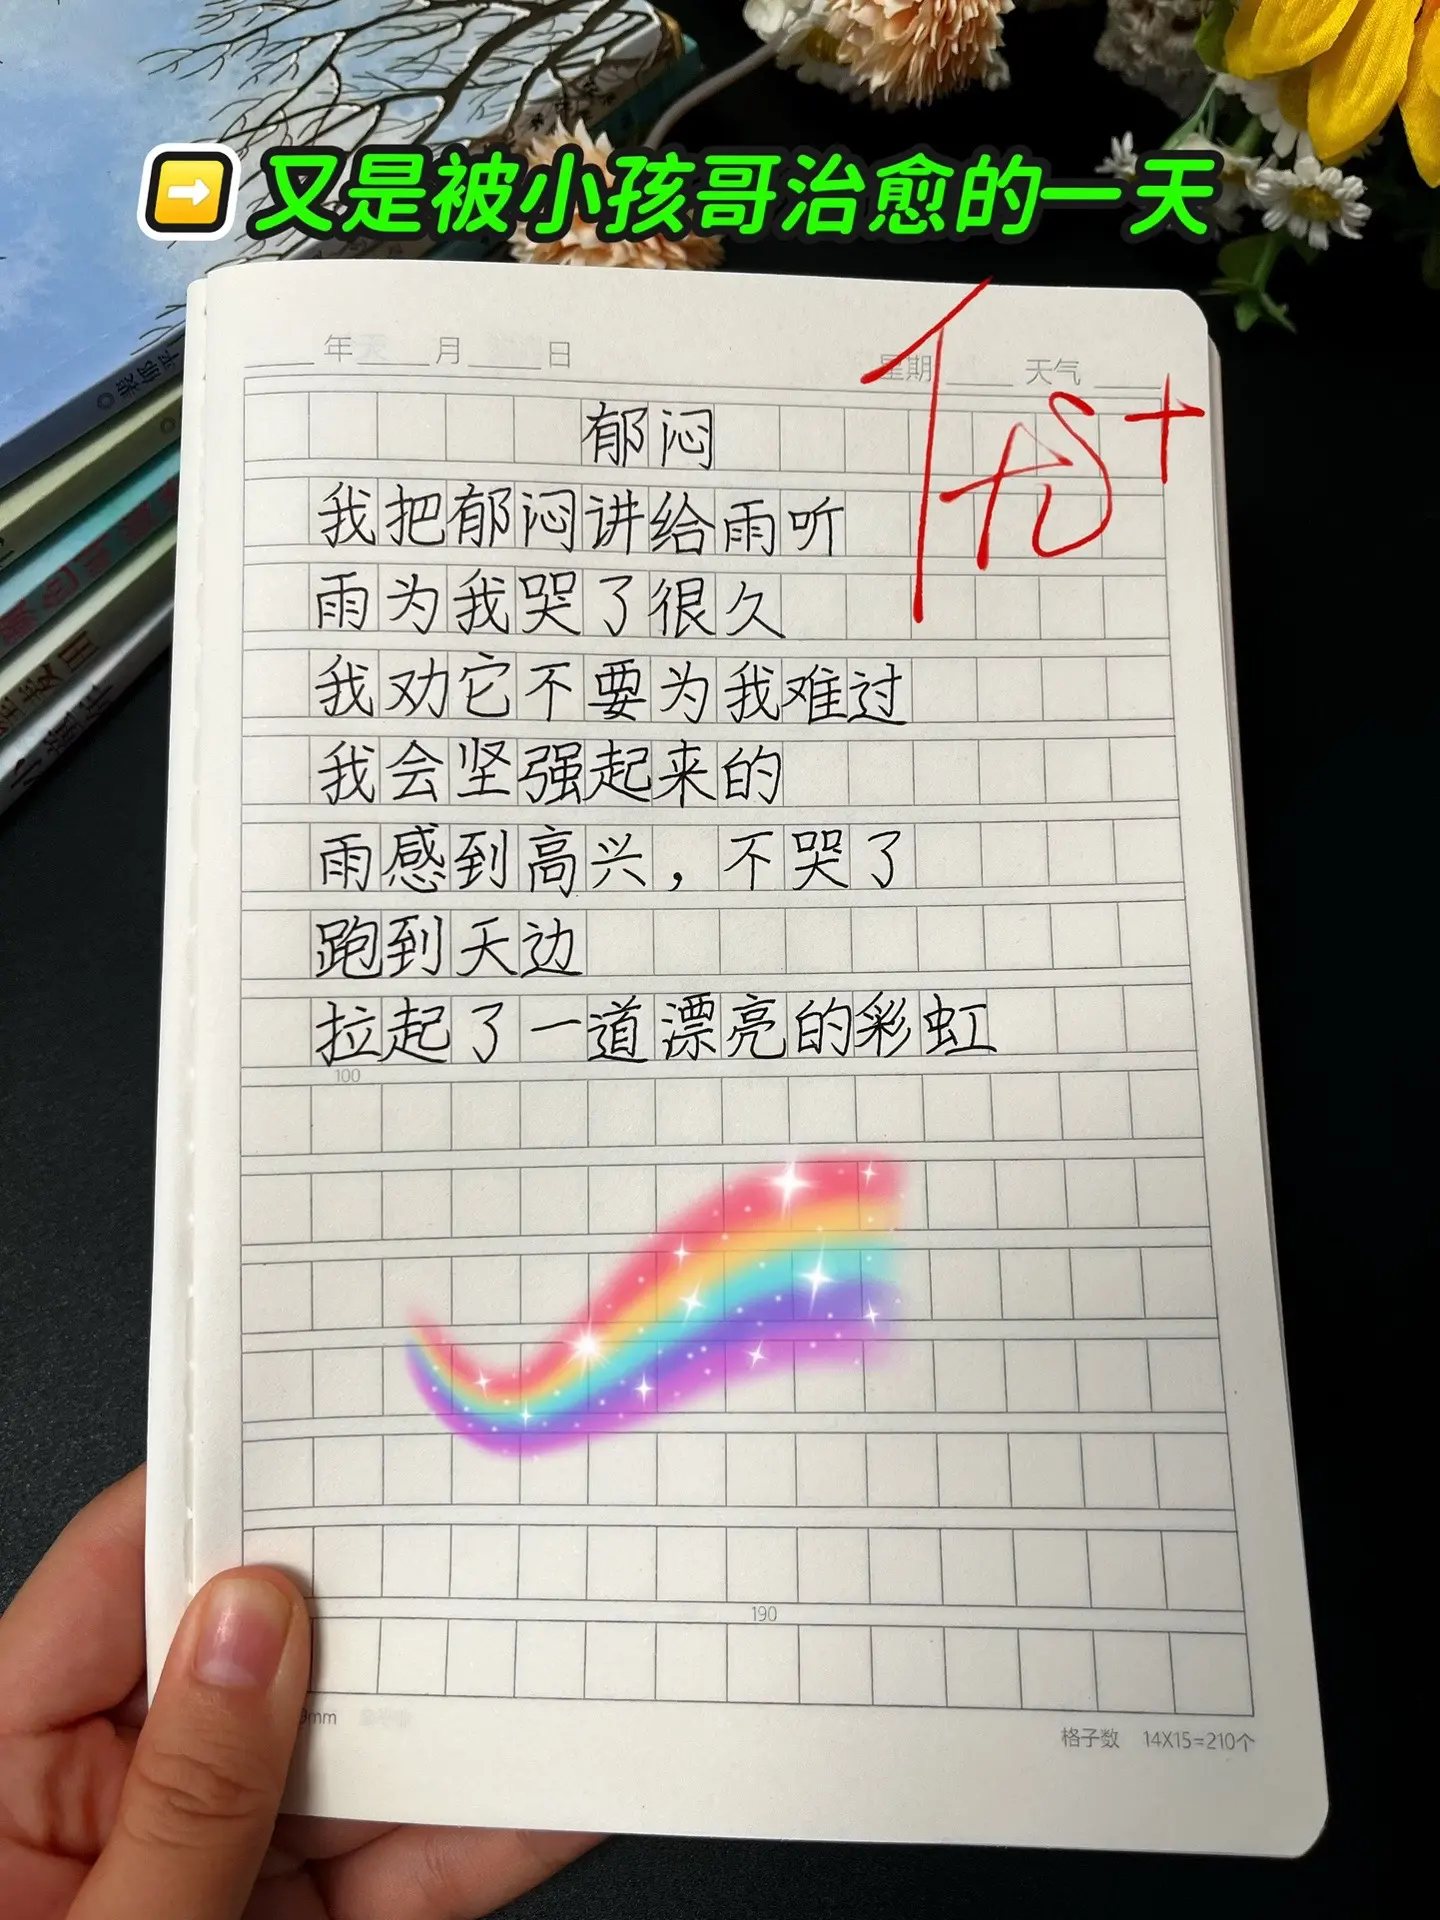 又是被小孩哥治愈的一天
年 月 日 星期 天气
优+
郁闷
我把郁闷讲给雨听
雨为我哭了很久
我劝它不要为我难过
我会坚强起来的
雨感到高兴，不哭了
跑到天边
拉起了一道漂亮的彩虹
100
190
9mm
格子数 14X15=210个